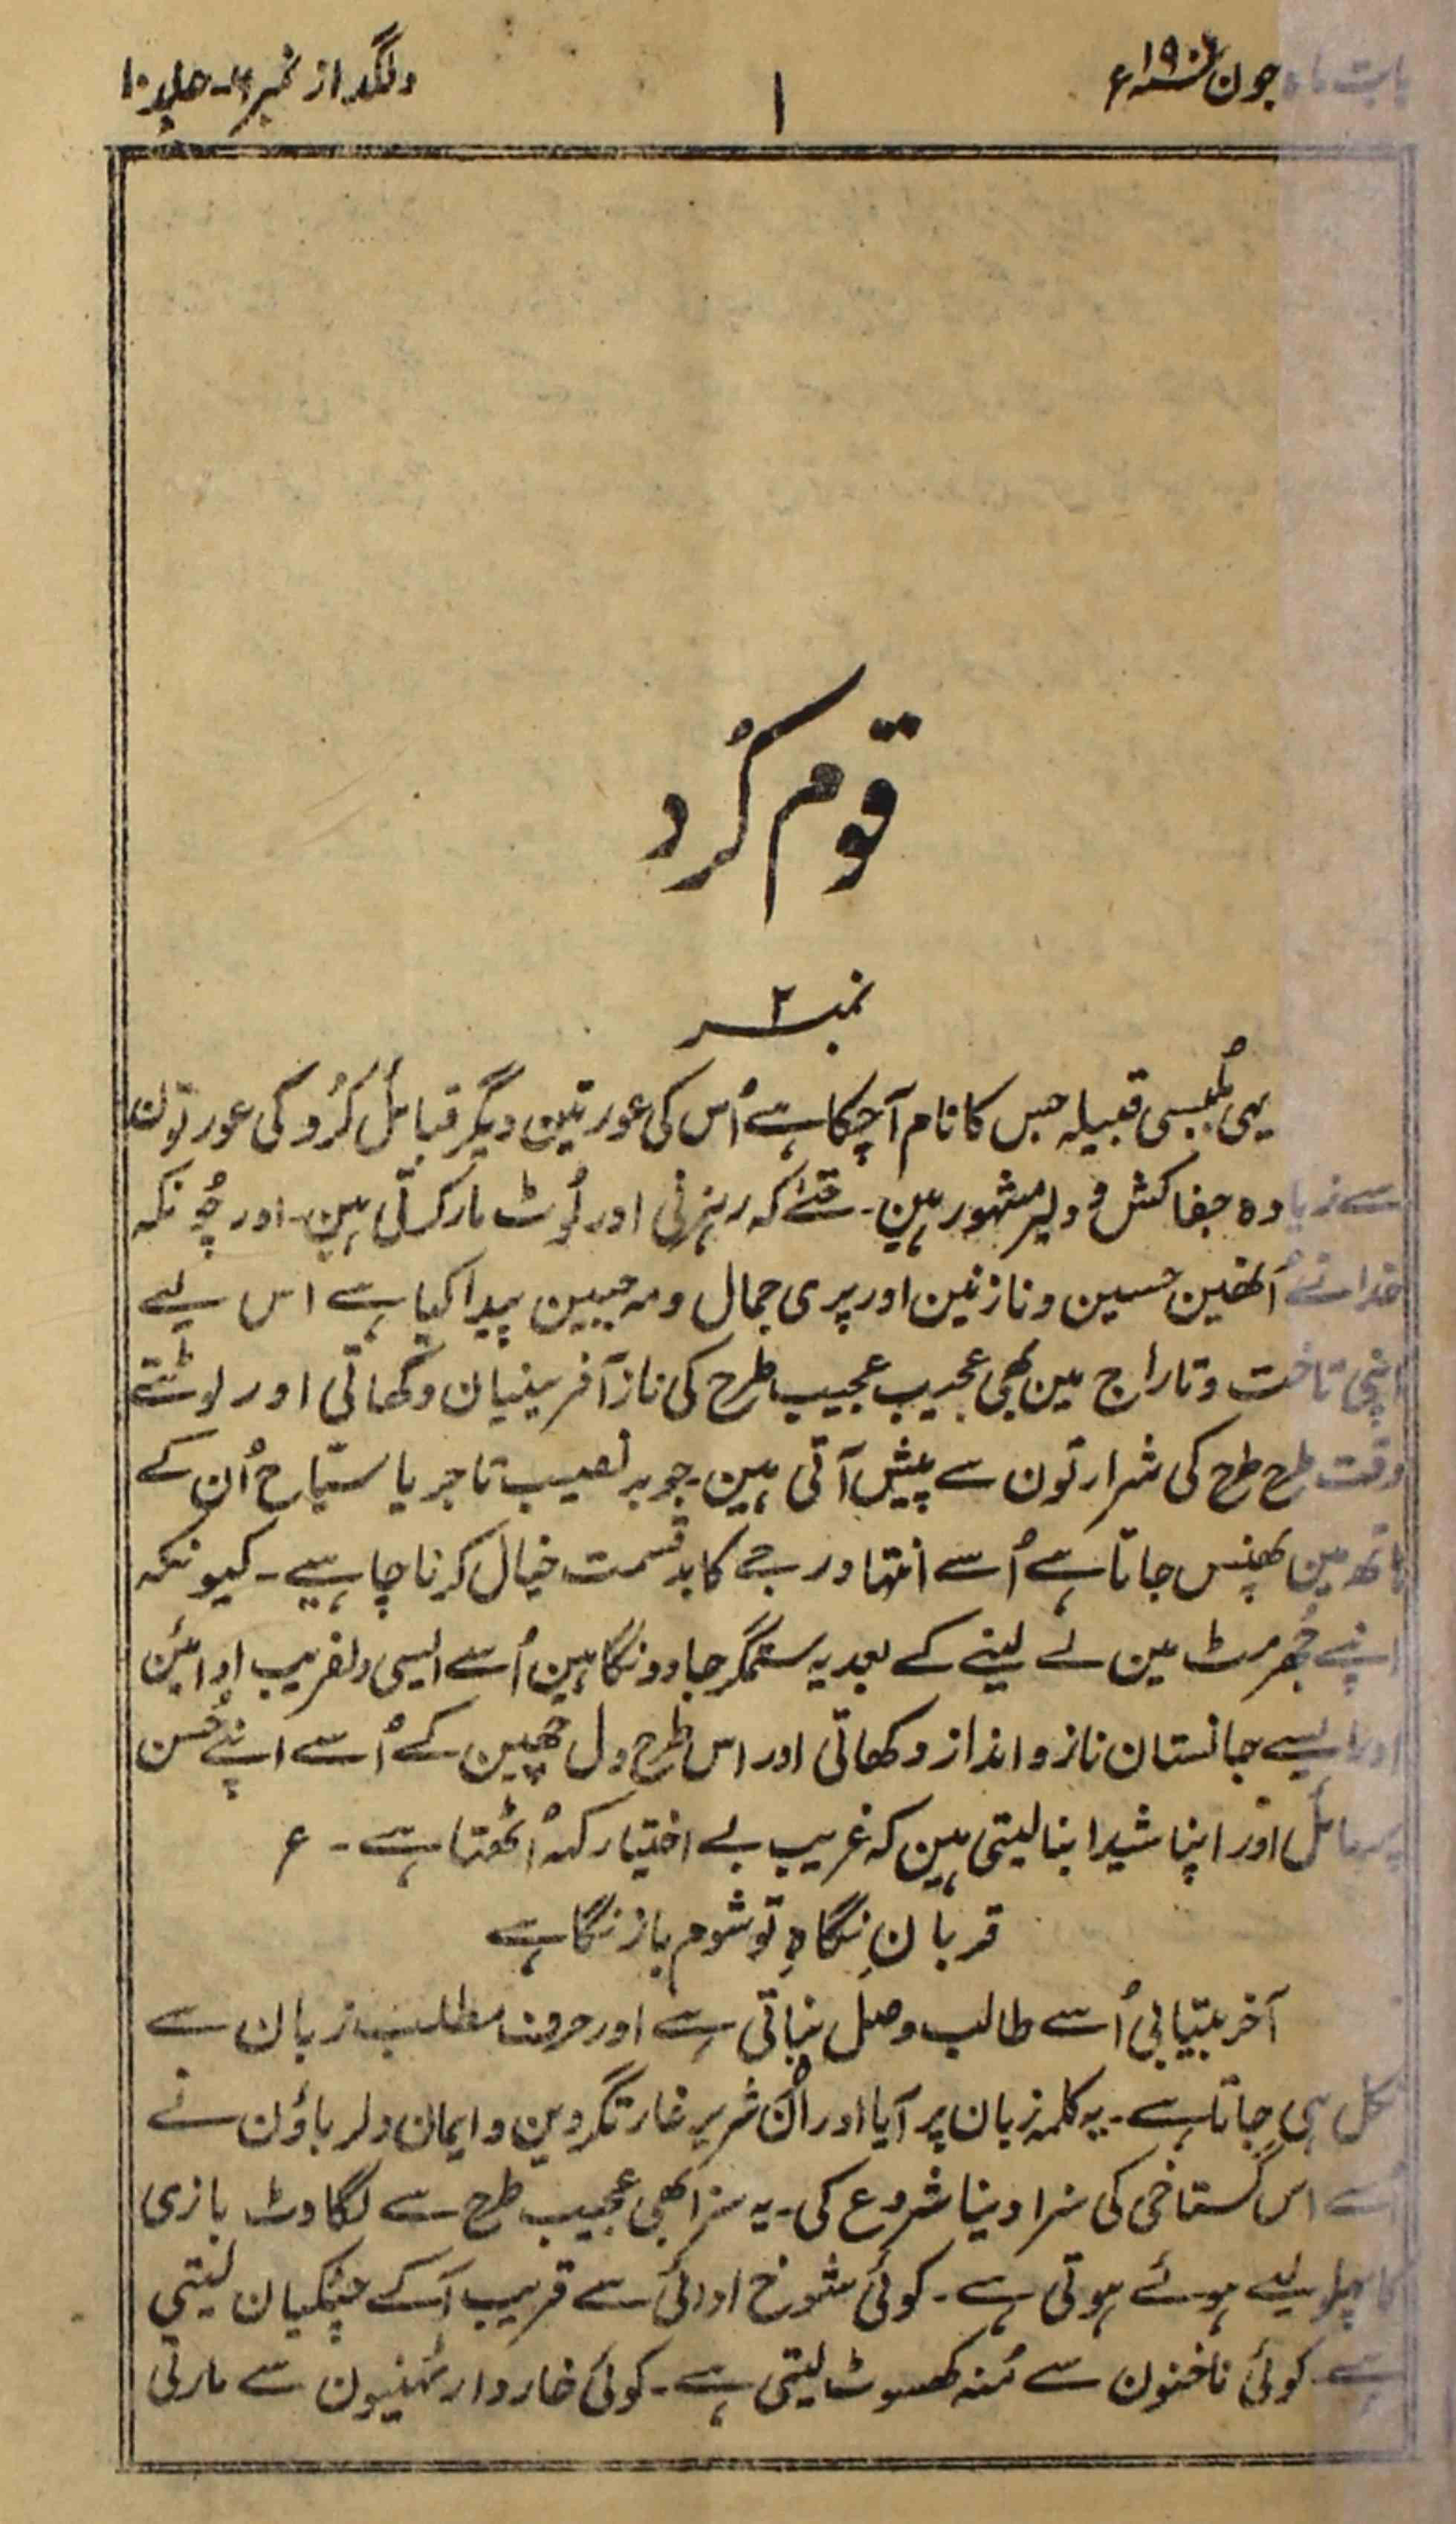 بابت ماہ جون سنہ ۱۹۰۶ء
۱
دلگداز نمبر ۶ - جلد ۱۰
قوم کُرد
نمبر ۲
یہی بُلبُسی قبیلہ جس کا نام آچکا ہے اُس کی عورتین دیگر قبائل کُرد کی عورتون
سے زیادہ جفاکش و دلیر مشہور ہین۔ حتےٰ کہ رہزنی اور لُوٹ مار کرتی ہین۔ اور چُونکہ
خدا نے اُنھین حسین و نازنین اور پری جمال و مہ جبین پیدا کیا ہے اس لیے
اپنی تاخت و تاراج مین بھی عجیب عجیب طرح کی ناز آفرینیان دکھاتی اور لوٹتے
وقت طرح طرح کی شرارتون سے پیش آتی ہین۔ جو بد نصیب تاجر یا سیّاح اُن کے
ہاتھ مین پھنس جاتا ہے اُسے انتہا درجے کا بد قسمت خیال کرنا چاہیے۔ کیونکہ
اپنے جُھرمٹ مین لے لینے کے بعد یہ ستمگر جادو نگاہین اُسے ایسی دلفریب ادائین
اور ایسے جانستان ناز و انداز دکھاتی اور اس طرح دل چھین کے اُسے اپنے حُسن
پر مائل اور اپنا شیدا بنا لیتی ہین کہ غریب بے اختیار کہہ اُٹھتا ہے۔ ع
قربانِ نگاہِ تو شوم باز نگاہے
آخر بیتابی اُسے طالب وصل بناتی ہے اور حرف مطلب زبان سے
نکل ہی جاتا ہے۔ یہ کلمہ زبان پر آیا اور اُن شریر غارتگر دین و ایمان دلرباؤن نے
اُسے اس گستاخی کی سزا دینا شروع کی۔ یہ سزا بھی عجیب طرح سے لگاوٹ بازی
کا پہلو لیے ہوئے ہوتی ہے۔ کوئی شوخ ادائی سے قریب آکے چٹکیان لیتی
ہے۔ کوئی ناخنون سے مُنہ کھسوٹ لیتی ہے۔ کوئی خاردار ٹہنیون سے مارتی